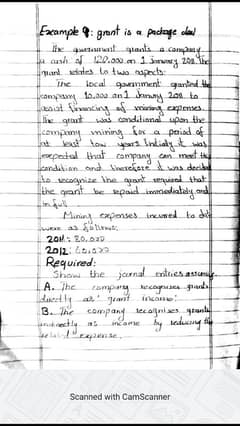 Example 9: grant is a package deal
The government grants a company
a cash of 120,000 on 1 January 2011. The
grant relates to two aspects:
The local government granted the
company 10,000 on 1 January 2011 to
assist financing of mining expenses.
The grant was conditional upon the
company mining for a period of
at least years. Initially it was
expected that company can meet the
condition and therefore it was decided
to recognize the grant required that
the grant be repaid immediately and
in full
Mining expenses incured to date
were as follows:
2011: 80,000
2012: 60,000
Required:
Show the journal entries
A. The company recognises grants
directly as 'grant income'
B. The company recognises grants
indirectly as income by reducing the
related expense.
Scanned with CamScanner